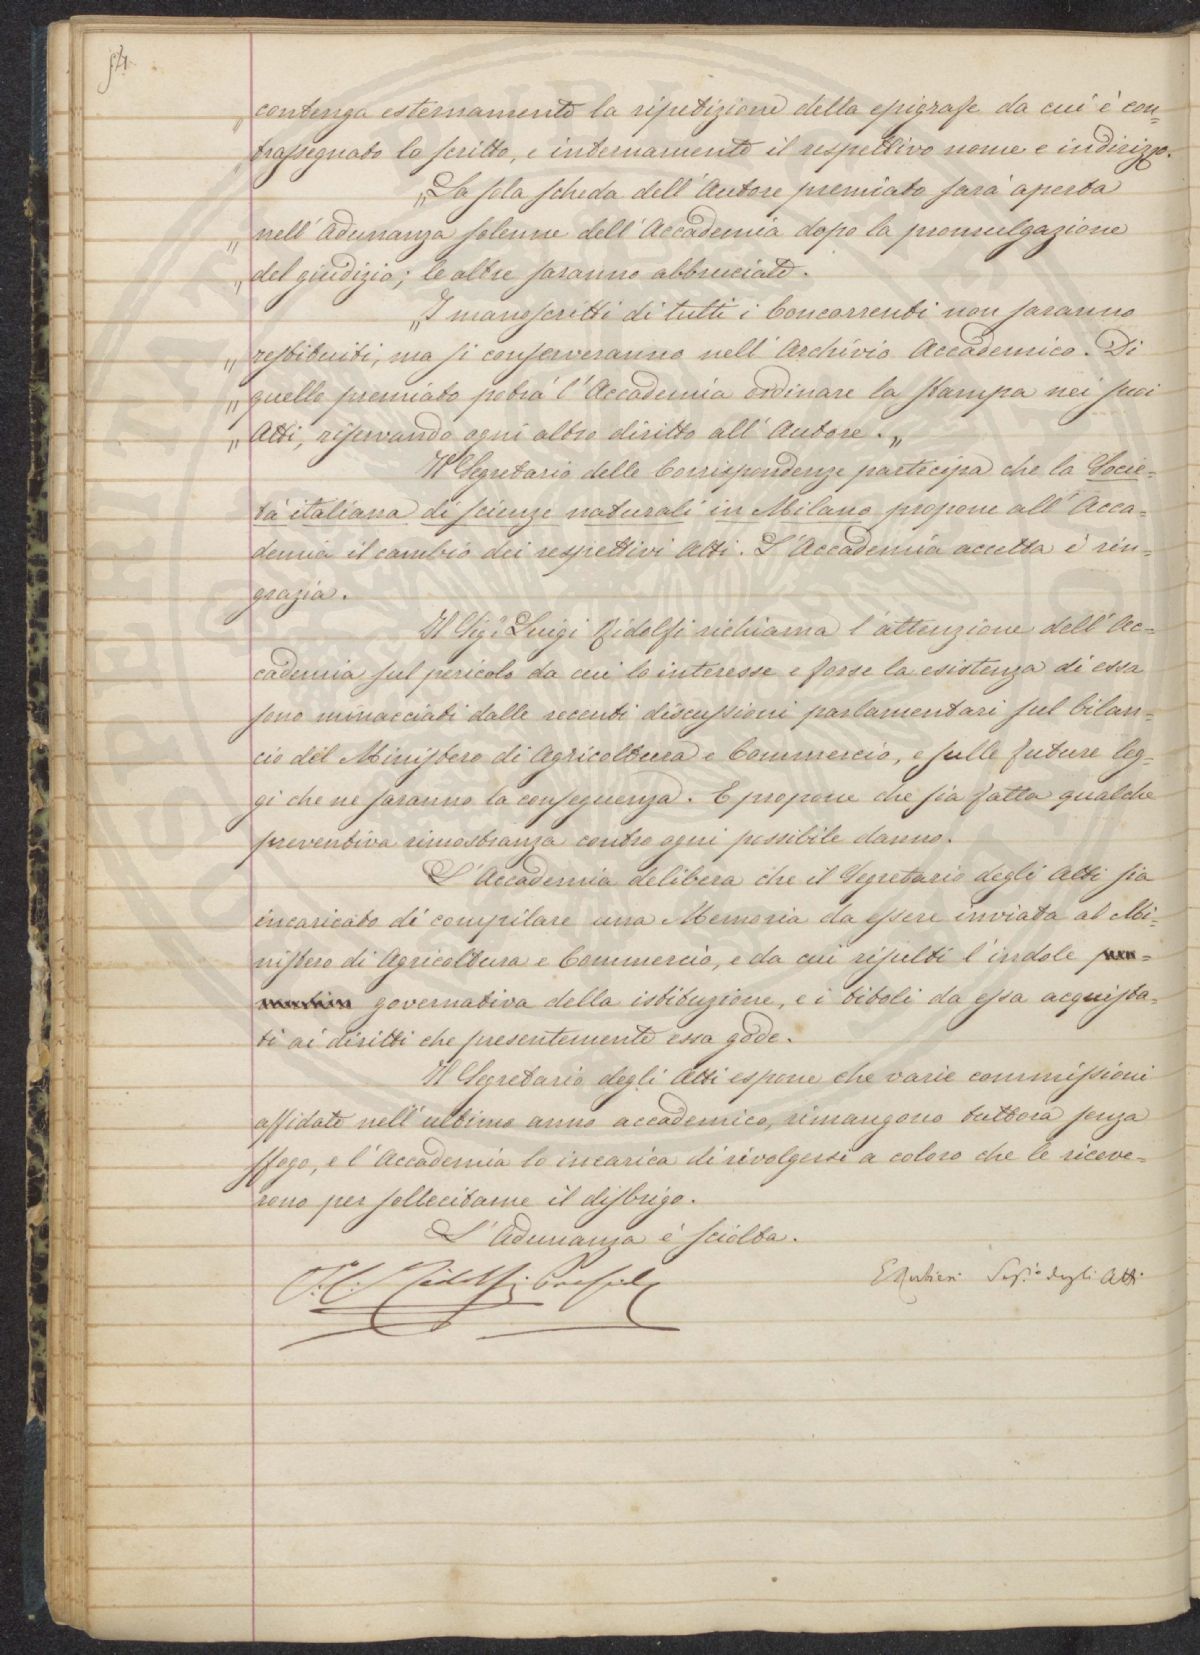 54.
„ contenga esternamente la ripetizione della epigrafe da cui è con=
„ trassegnato lo scritto, e internamente il respettivo nome e indirizzo.
„ La sola scheda dell'Autore premiato sarà aperta
„ nell'Adunanza solenne dell'Accademia dopo la promulgazione
„ del giudizio; le altre saranno abbruciate.
„ I manoscritti di tutti i Concorrenti non saranno
„ restituiti, ma si conserveranno nell'Archivio Accademico. Di
„ quello premiato potrà l'Accademia ordinare la stampa nei suoi
„ Atti, riservando ogni altro diritto all'Autore. „
Il Segretario delle Corrispondenze partecipa che la Socie=
tà italiana di scienze naturali in Milano propone all'Acca=
demia il cambio dei respettivi Atti. L'Accademia accetta e rin=
grazia.
Il Sigr. Luigi Ridolfi richiama l'attenzione dell'Ac=
cademia sul pericolo da cui lo interesse e forse la esistenza di essa
sono minacciati dalle recenti discussioni parlamentari sul bilan=
cio del Ministero di Agricoltura e Commercio, e sulle future leg=
gi che ne saranno la conseguenza. E propone che sia fatta qualche
preventiva rimostranza contro ogni possibile danno.
L'Accademia delibera che il Segretario degli Atti sia
incaricato di compilare una Memoria da essere inviata al Mi=
nistero di Agricoltura e Commercio, e da cui risulti l'indole
governativa della istituzione, e i titoli da essa acquista=
ti ai diritti che presentemente essa gode.
Il Segretario degli Atti espone che varie commissioni
affidate nell'ultimo anno accademico, rimangono tuttora senza
sfogo, e l'Accademia lo incarica di rivolgersi a coloro che le riceve=
rono per sollecitarne il disbrigo.
L'Adunanza è sciolta.
Ridolfi
E Rubieri Segrio degli Atti